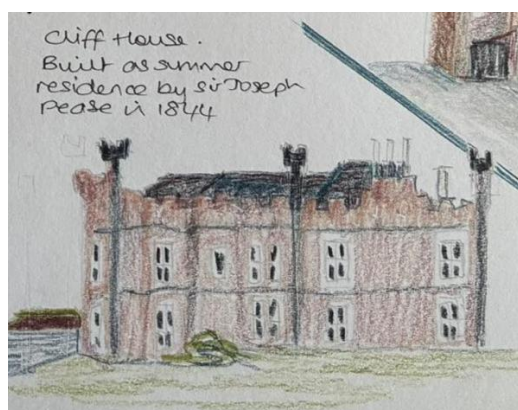 Cliff House.
Built as summer
residence by Sir Joseph
Pease in 1844